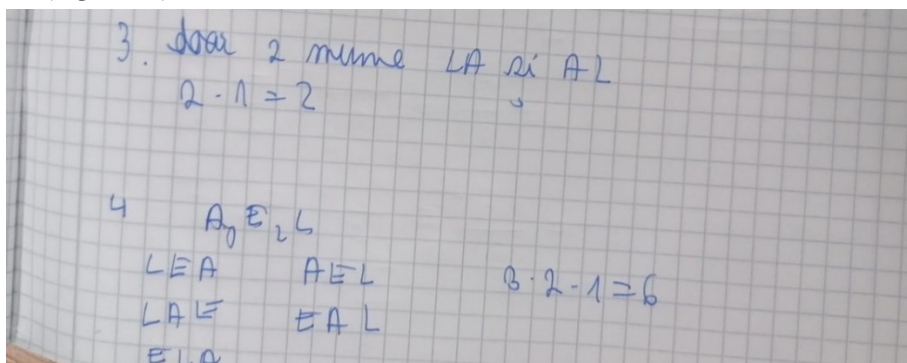 3. doar 2 nume LA și AL
2 · 1 = 2
4 A, E, L
LEA AEL 3 · 2 · 1 = 6
LAE EAL
ELA